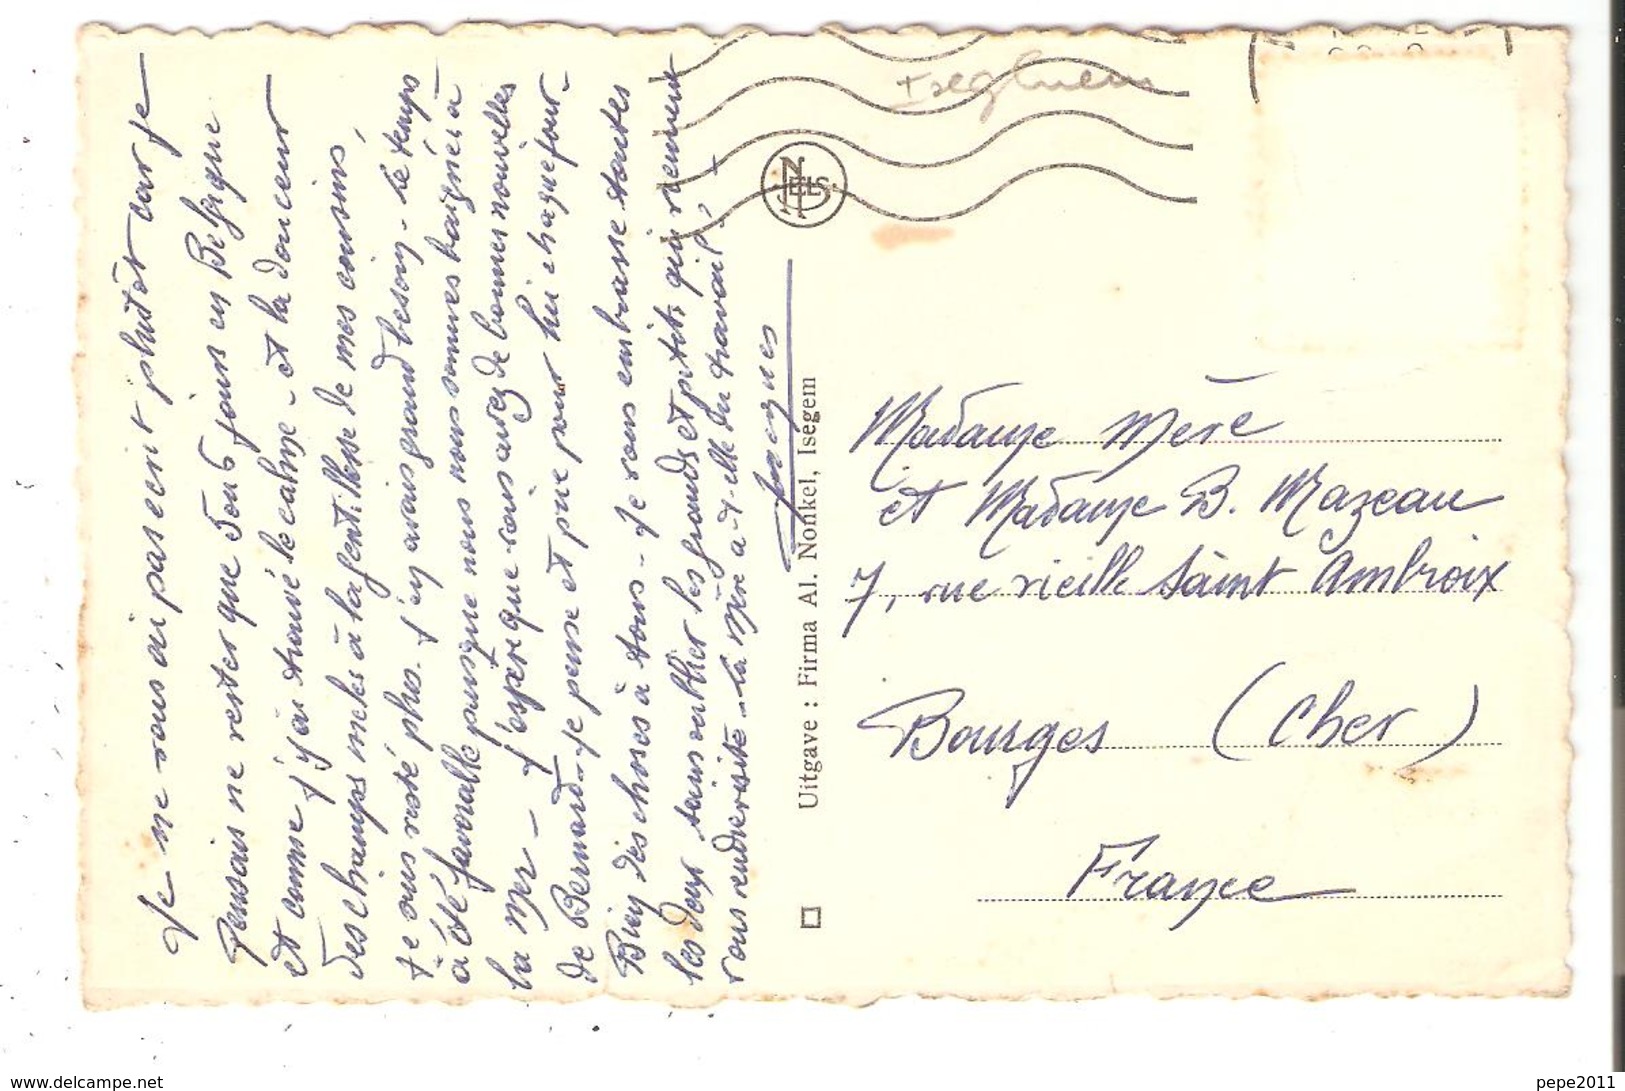 Je ne vous ai pas écrit plutôt car je
pensais ne rester que 5 ou 6 jours en Belgique
et comme j'y ai trouvé le calme - et la douceur
des champs mêlés à la gentillesse de mes cousins,
je suis resté plus. J'en avais grand besoin - le temps
a été favorable puisque nous nous sommes baignés à
la mer - J'espère que vous avez de bonnes nouvelles
de Bernard - je pense et prie pour lui chaque jour -
Bien des choses à tous - Je vous embrasse toutes
les deux sans oublier les grands et petits qui viennent
vous rendre visite - la Mère a-t-elle du travail ?
Jacques
Uitgave : Firma Al. Nonkel, Isegem
NELS
Iseghem
Madame Mère
et Madame B. Mazeau
7, rue vieille Saint Ambroix
Bourges (Cher)
France
www.delcampe.net
pepe2011